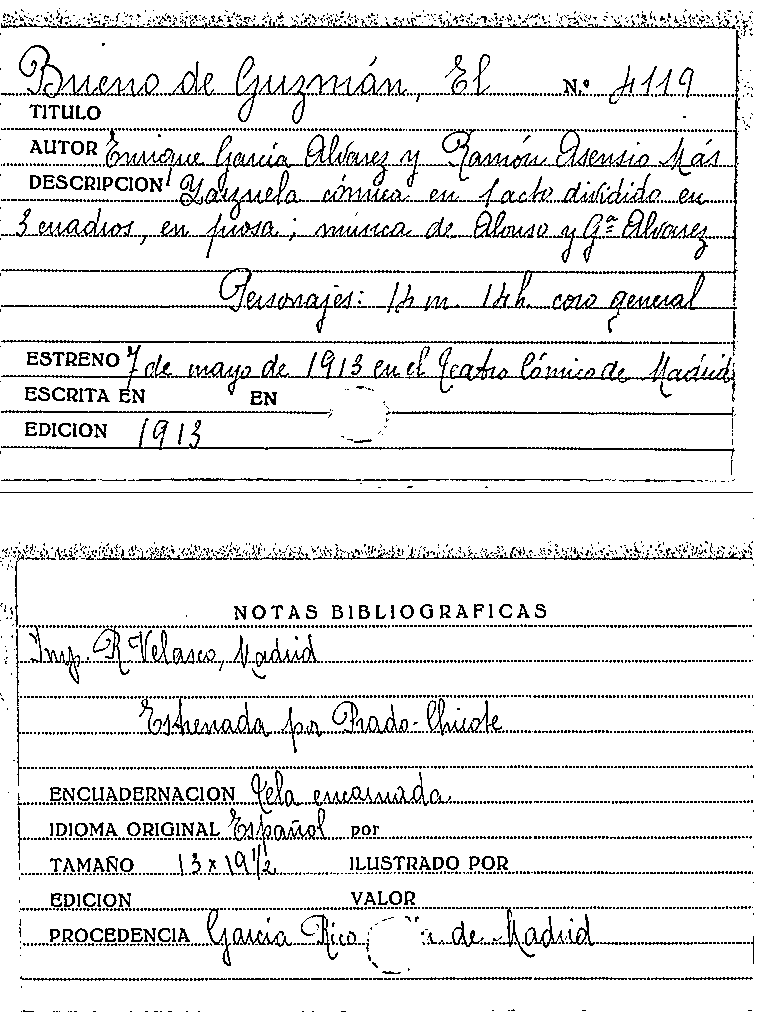 Bueno de Guzmán, El N.º 4119
TITULO
AUTOR Enrique García Alvarez y Ramón Asensio Más
DESCRIPCION Zarzuela cómica en 1 acto dividido en
3 cuadros, en prosa; música de Alonso y Gª Alvarez
Personajes: 14 m. 14 h. coro general
ESTRENO 7 de mayo de 1913 en el Teatro Cómico de Madrid
ESCRITA EN EN
EDICION 1913
NOTAS BIBLIOGRAFICAS
Imp. R. Velasco, Madrid
Estrenada por Prado-Chicote
ENCUADERNACION Tela encarnada
IDIOMA ORIGINAL Español por
TAMAÑO 13 x 19 1/2 ILUSTRADO POR
EDICION VALOR
PROCEDENCIA García Rico de Madrid